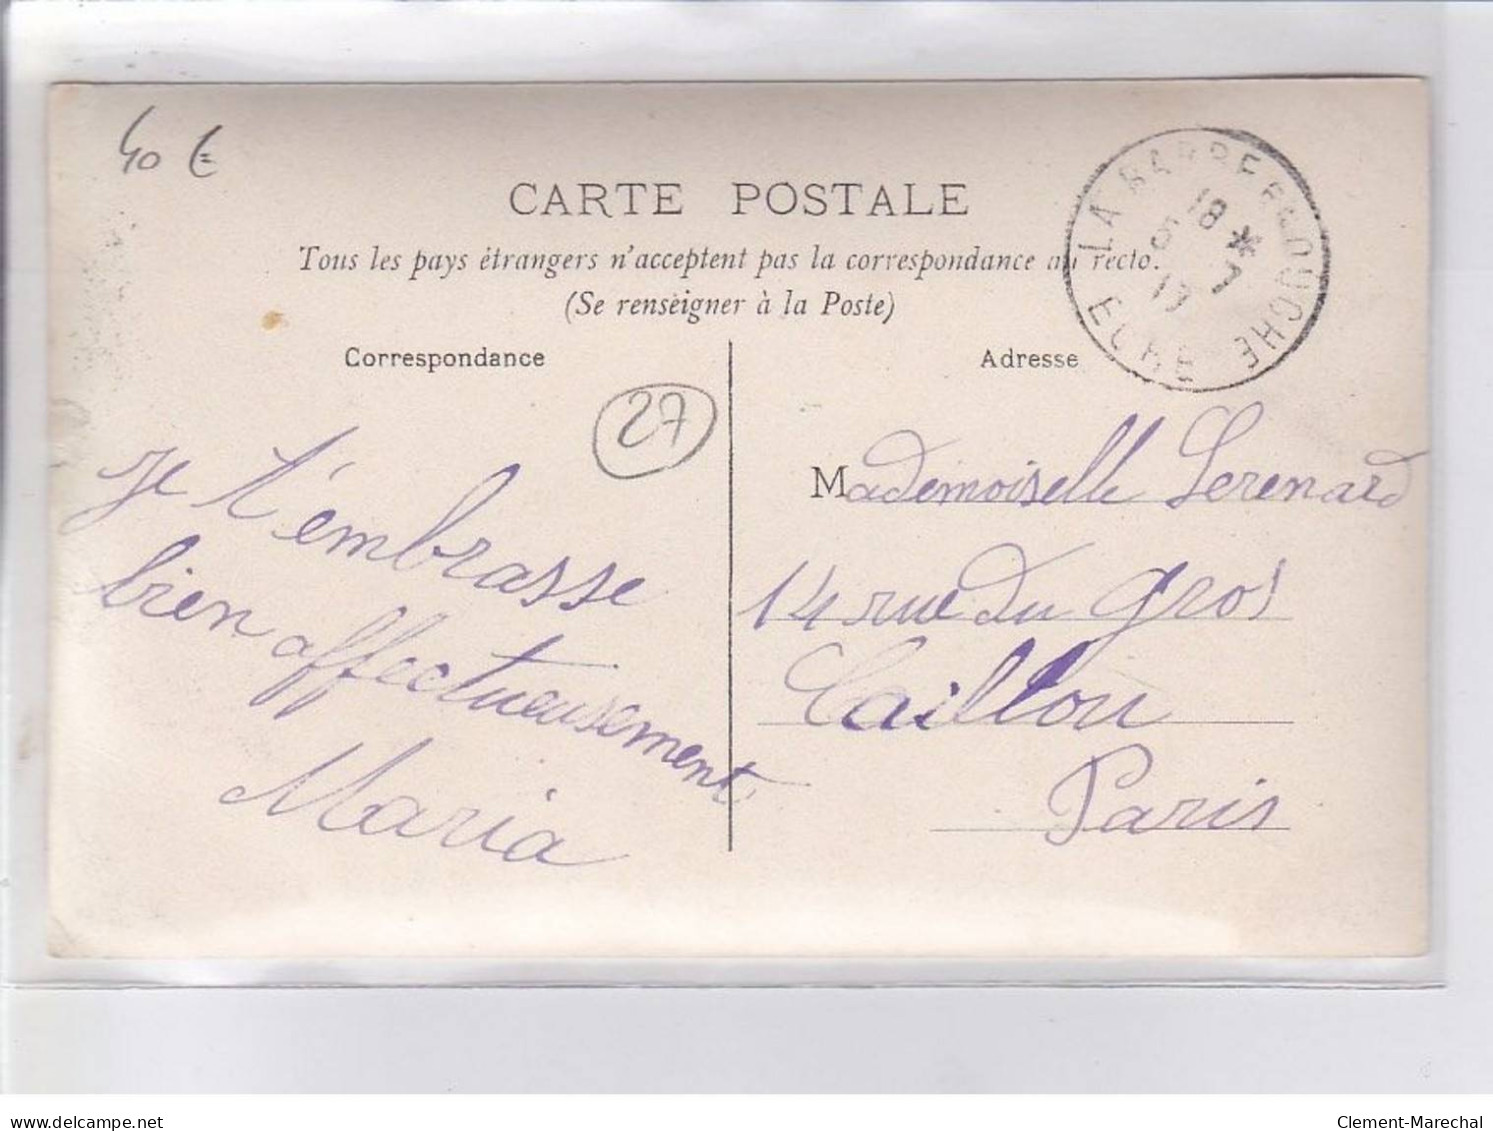 40 €
CARTE POSTALE
Tous les pays étrangers n'acceptent pas la correspondance au recto.
(Se renseigner à la Poste)
LA BARRE EN OUCHE
18 *
5 7
17
EURE
Correspondance
27
je t'embrasse
bien affectueusement
Maria
Adresse
Mademoiselle Serenard
14 rue du gros
Caillou
Paris
delcampe.net
Clement-Marechal